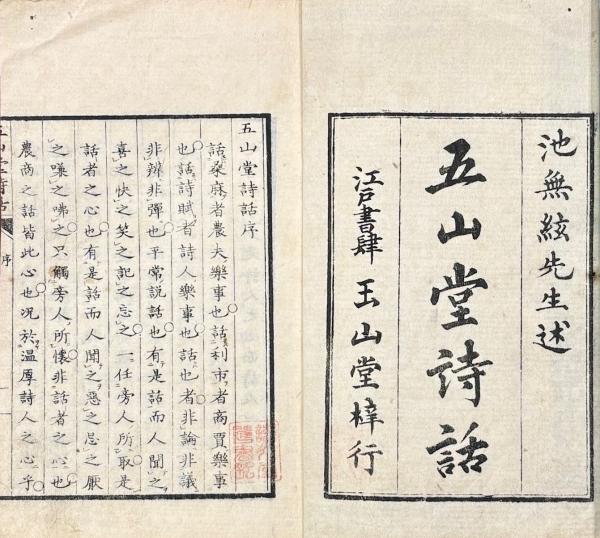 池無絃先生述
五山堂詩話
江戸書肆 玉山堂梓行
五山堂詩話序
話桑麻者農夫樂事也話利市者商賈樂事
也話詩賦者詩人樂事也話也者非論非議
非辨非彈也平常説話也有是話而人聞之
喜之快之笑之記之忘之一任旁人所取是
話者之心也有是話而人聞之惡之忌之厭
之嗤之咈之只觸旁人所懷非話者之心也
農商之話皆此心也况於温厚詩人之心乎
五山堂詩話
序